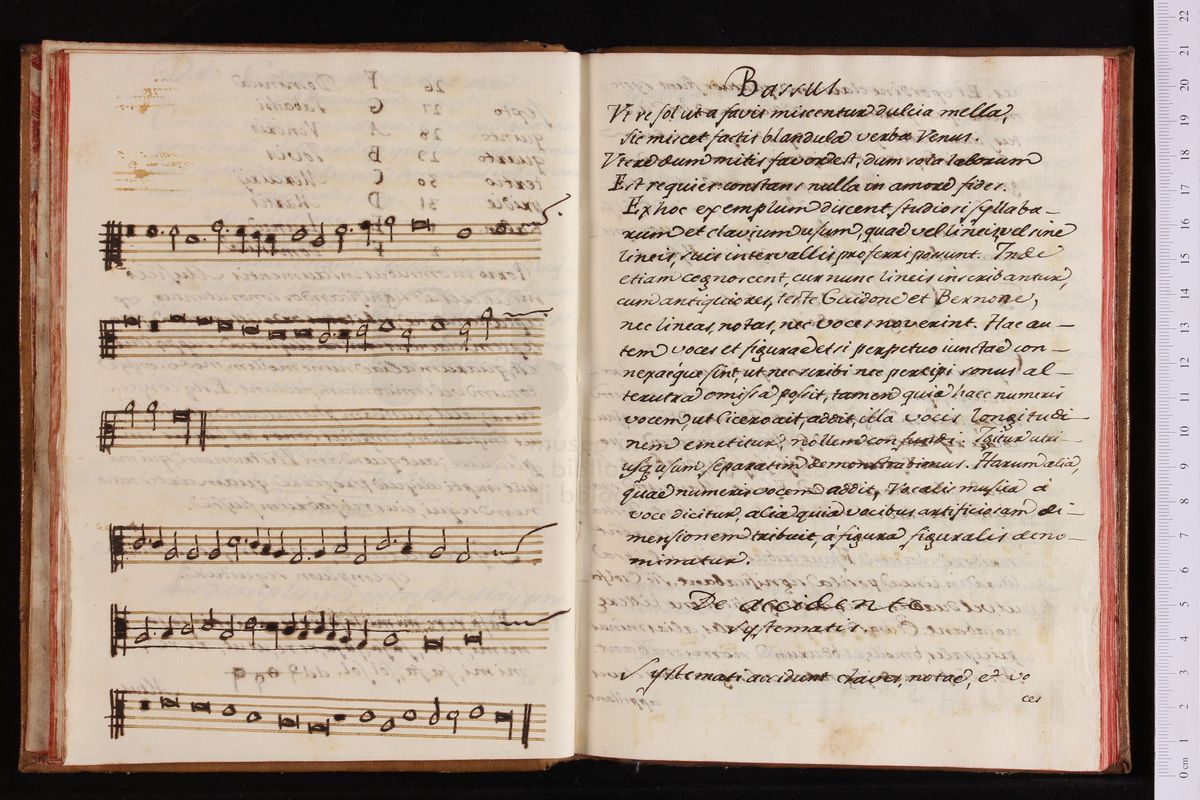 Bassus
Vt re sol ut a favis miscentur dulcia mella,
Sic miscet factis blandula verba Venus.
Vere dum mitis favor est, dum sola laborum
Est requies constans nulla in amore fides.
Ex hoc exemplum discent studiosi syllaba-
rum et clavium usum, quae vel lineis, vel sine
lineis, suis intervallis proferri possunt. Inde
etiam cognoscent, cur nunc lineis inscribantur,
cum antiquiores, teste Guidone et Bernone,
nec lineas, notas, nec voces noverint. Hae au-
tem voces et figurae etsi perpetuo iunctae con-
nexaeque sint, ut nec scribi nec percipi sonus al-
terutra omissa possit, tamen quia haec numeris
vocem, ut Cicero ait, addit, illa vocis longitudi-
nem emetitur, nollem confundi. Igitur utri-
usq usum separatim demonstrabimus. Harum alia,
quae numeris vocem addit, Vocalis musica a
voce dicitur, alia quia vocibus artificiosam di-
mensionem tribuit, a figura figuralis deno-
minatur.
De accidente
Systematis.
Systemati accidunt claves notae, et vo
ces